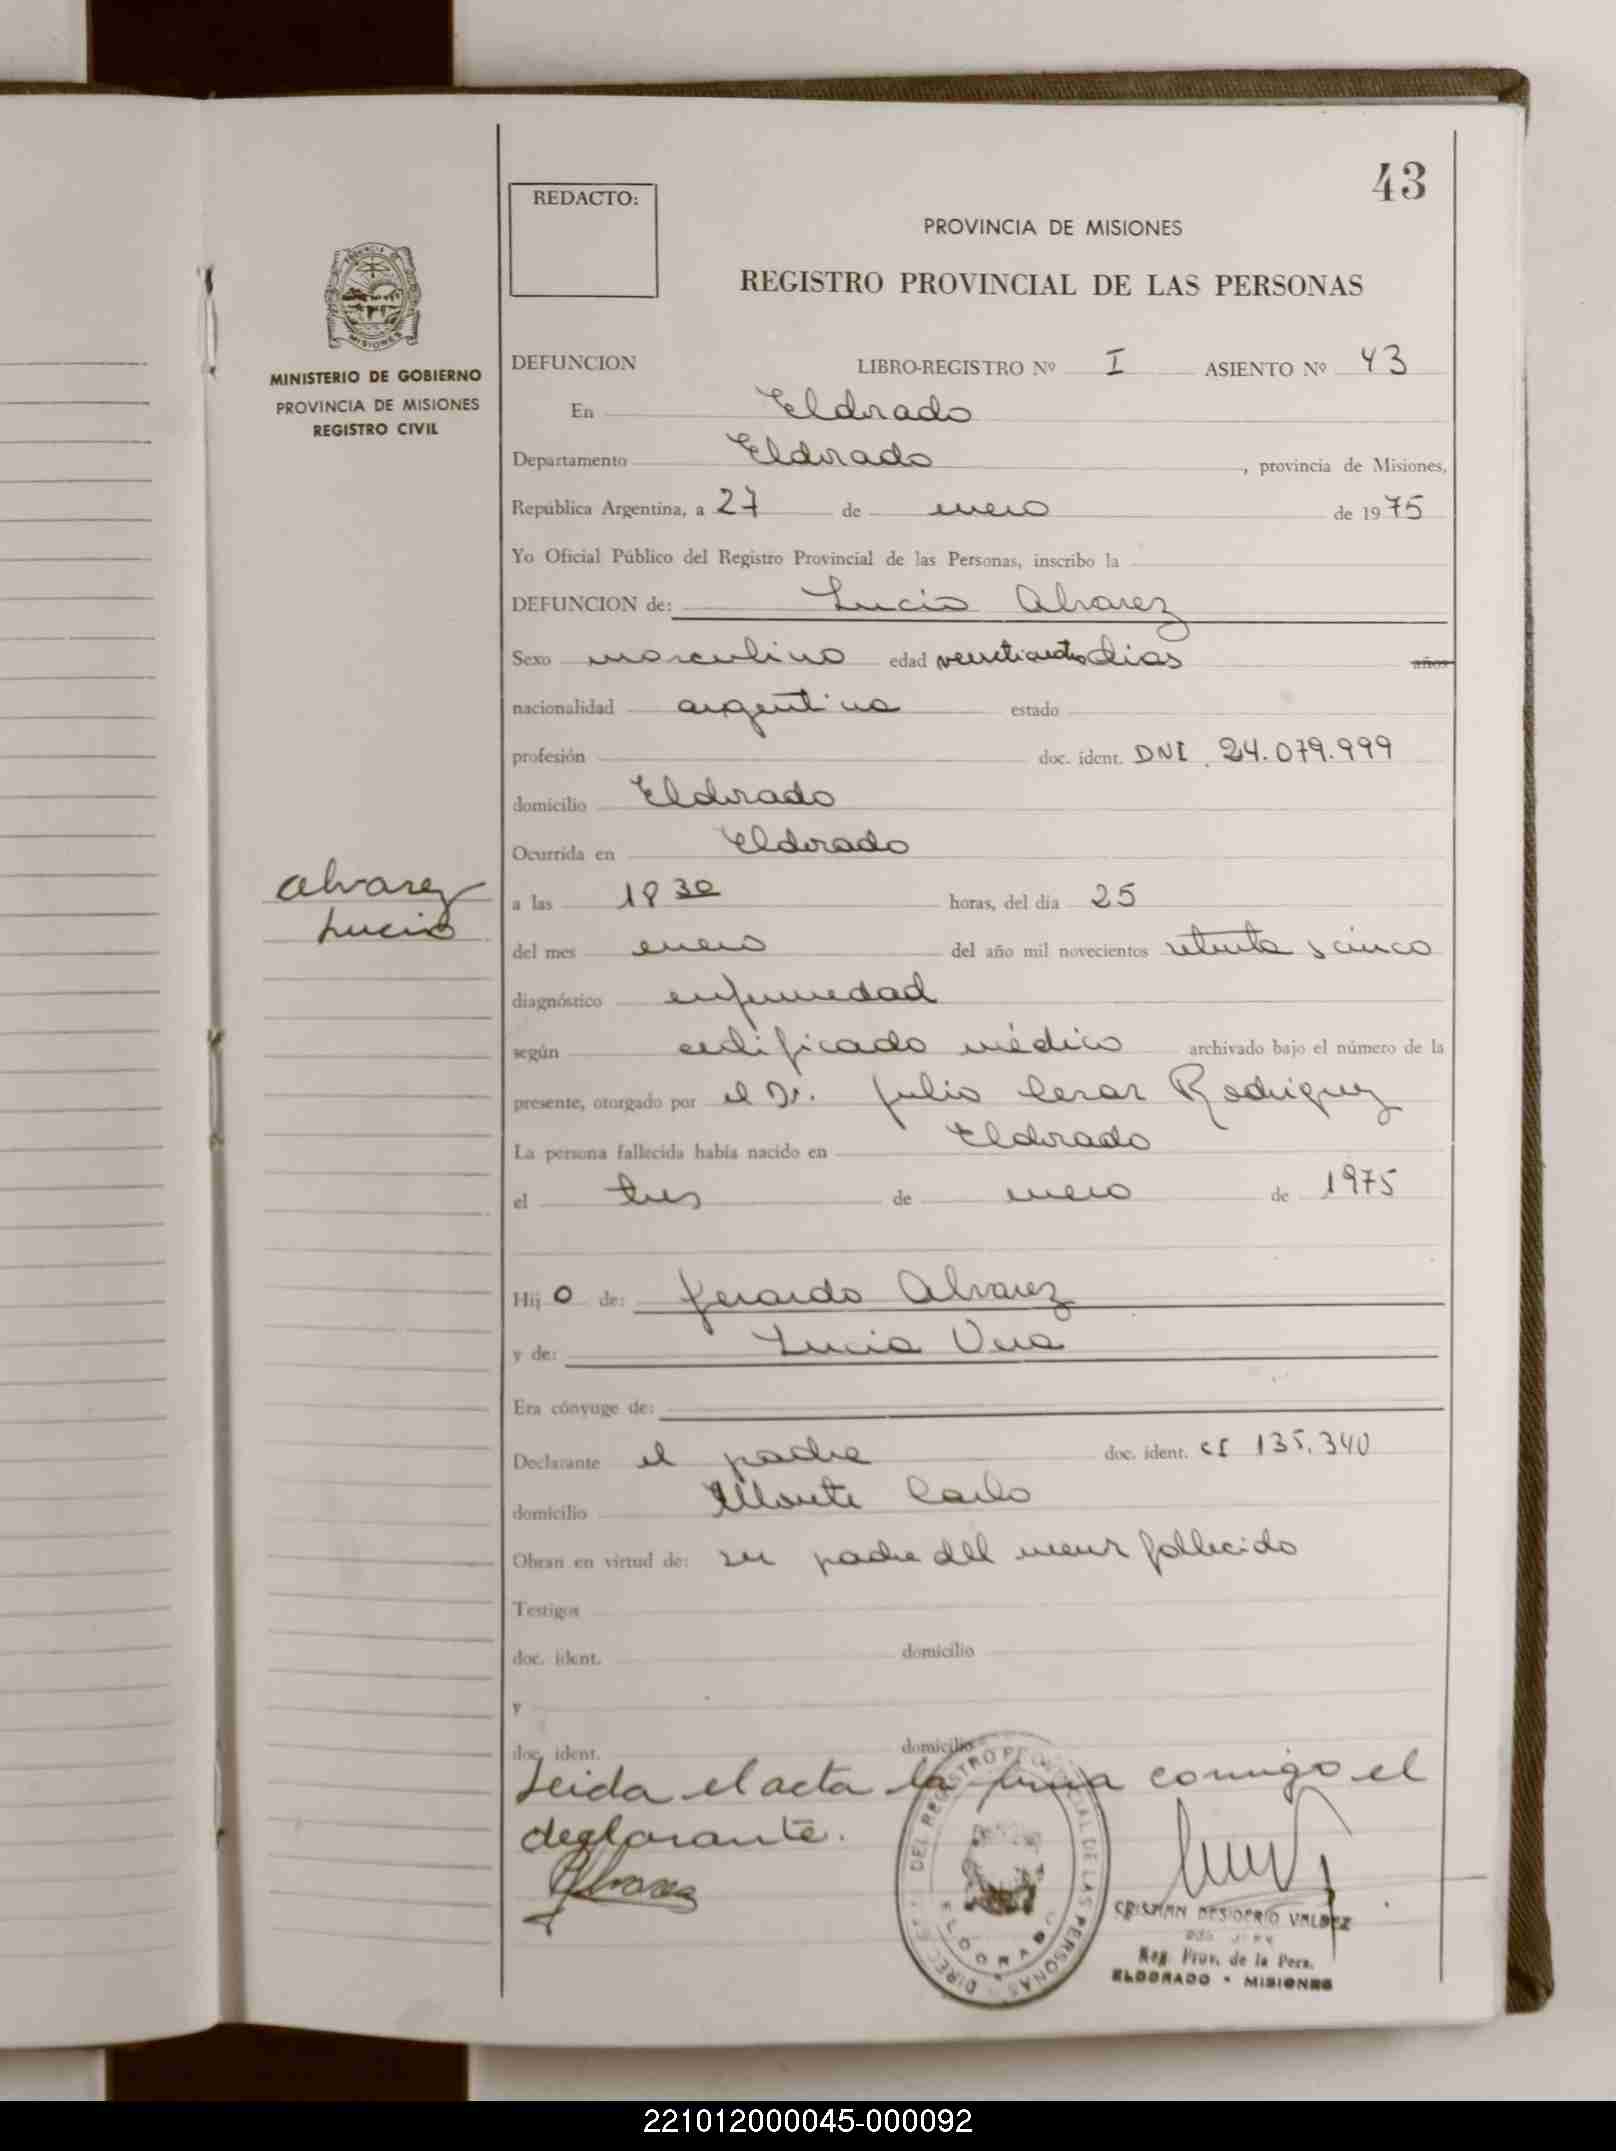 43
REDACTO:
PROVINCIA DE MISIONES
REGISTRO PROVINCIAL DE LAS PERSONAS
MISIONES
MINISTERIO DE GOBIERNO
PROVINCIA DE MISIONES
REGISTRO CIVIL
DEFUNCION LIBRO-REGISTRO Nº I ASIENTO Nº 43
En Eldorado
Departamento Eldorado, provincia de Misiones,
República Argentina, a 27 de enero de 1975
Yo Oficial Público del Registro Provincial de las Personas, inscribo la
DEFUNCION de: Lucio Alvarez
Sexo masculino edad dias años
nacionalidad argentina estado
profesión doc. ident. DNI. 24.079.999
domicilio Eldorado
Ocurrida en Eldorado
Alvarez
Lucio
a las 18 30 horas, del día 25
del mes enero del año mil novecientos setenta y cinco
diagnóstico enfermedad
según certificado médico archivado bajo el número de la
presente, otorgado por el Dr. Julio Cesar Rodriguez
La persona fallecida había nacido en Eldorado
el tres de enero de 1975
Hijo de: Gerardo Alvarez
y de: Lucia Vera
Era cónyuge de:
Declarante el padre doc. ident. CI 135.340
domicilio Monte Carlo
Obran en virtud de: ser padre del menor fallecido
Testigos
doc. ident. domicilio
y
doc. ident. domicilio
Leida el acta la firma comigo el
deglarante.
Alvarez
DEL REGISTRO PROVINCIAL DE LAS PERSONAS
ELDORADO
CRISTIAN DESIDERIO VALDEZ
Reg. Prov. de la Pers.
ELDORADO - MISIONES
221012000045-000092